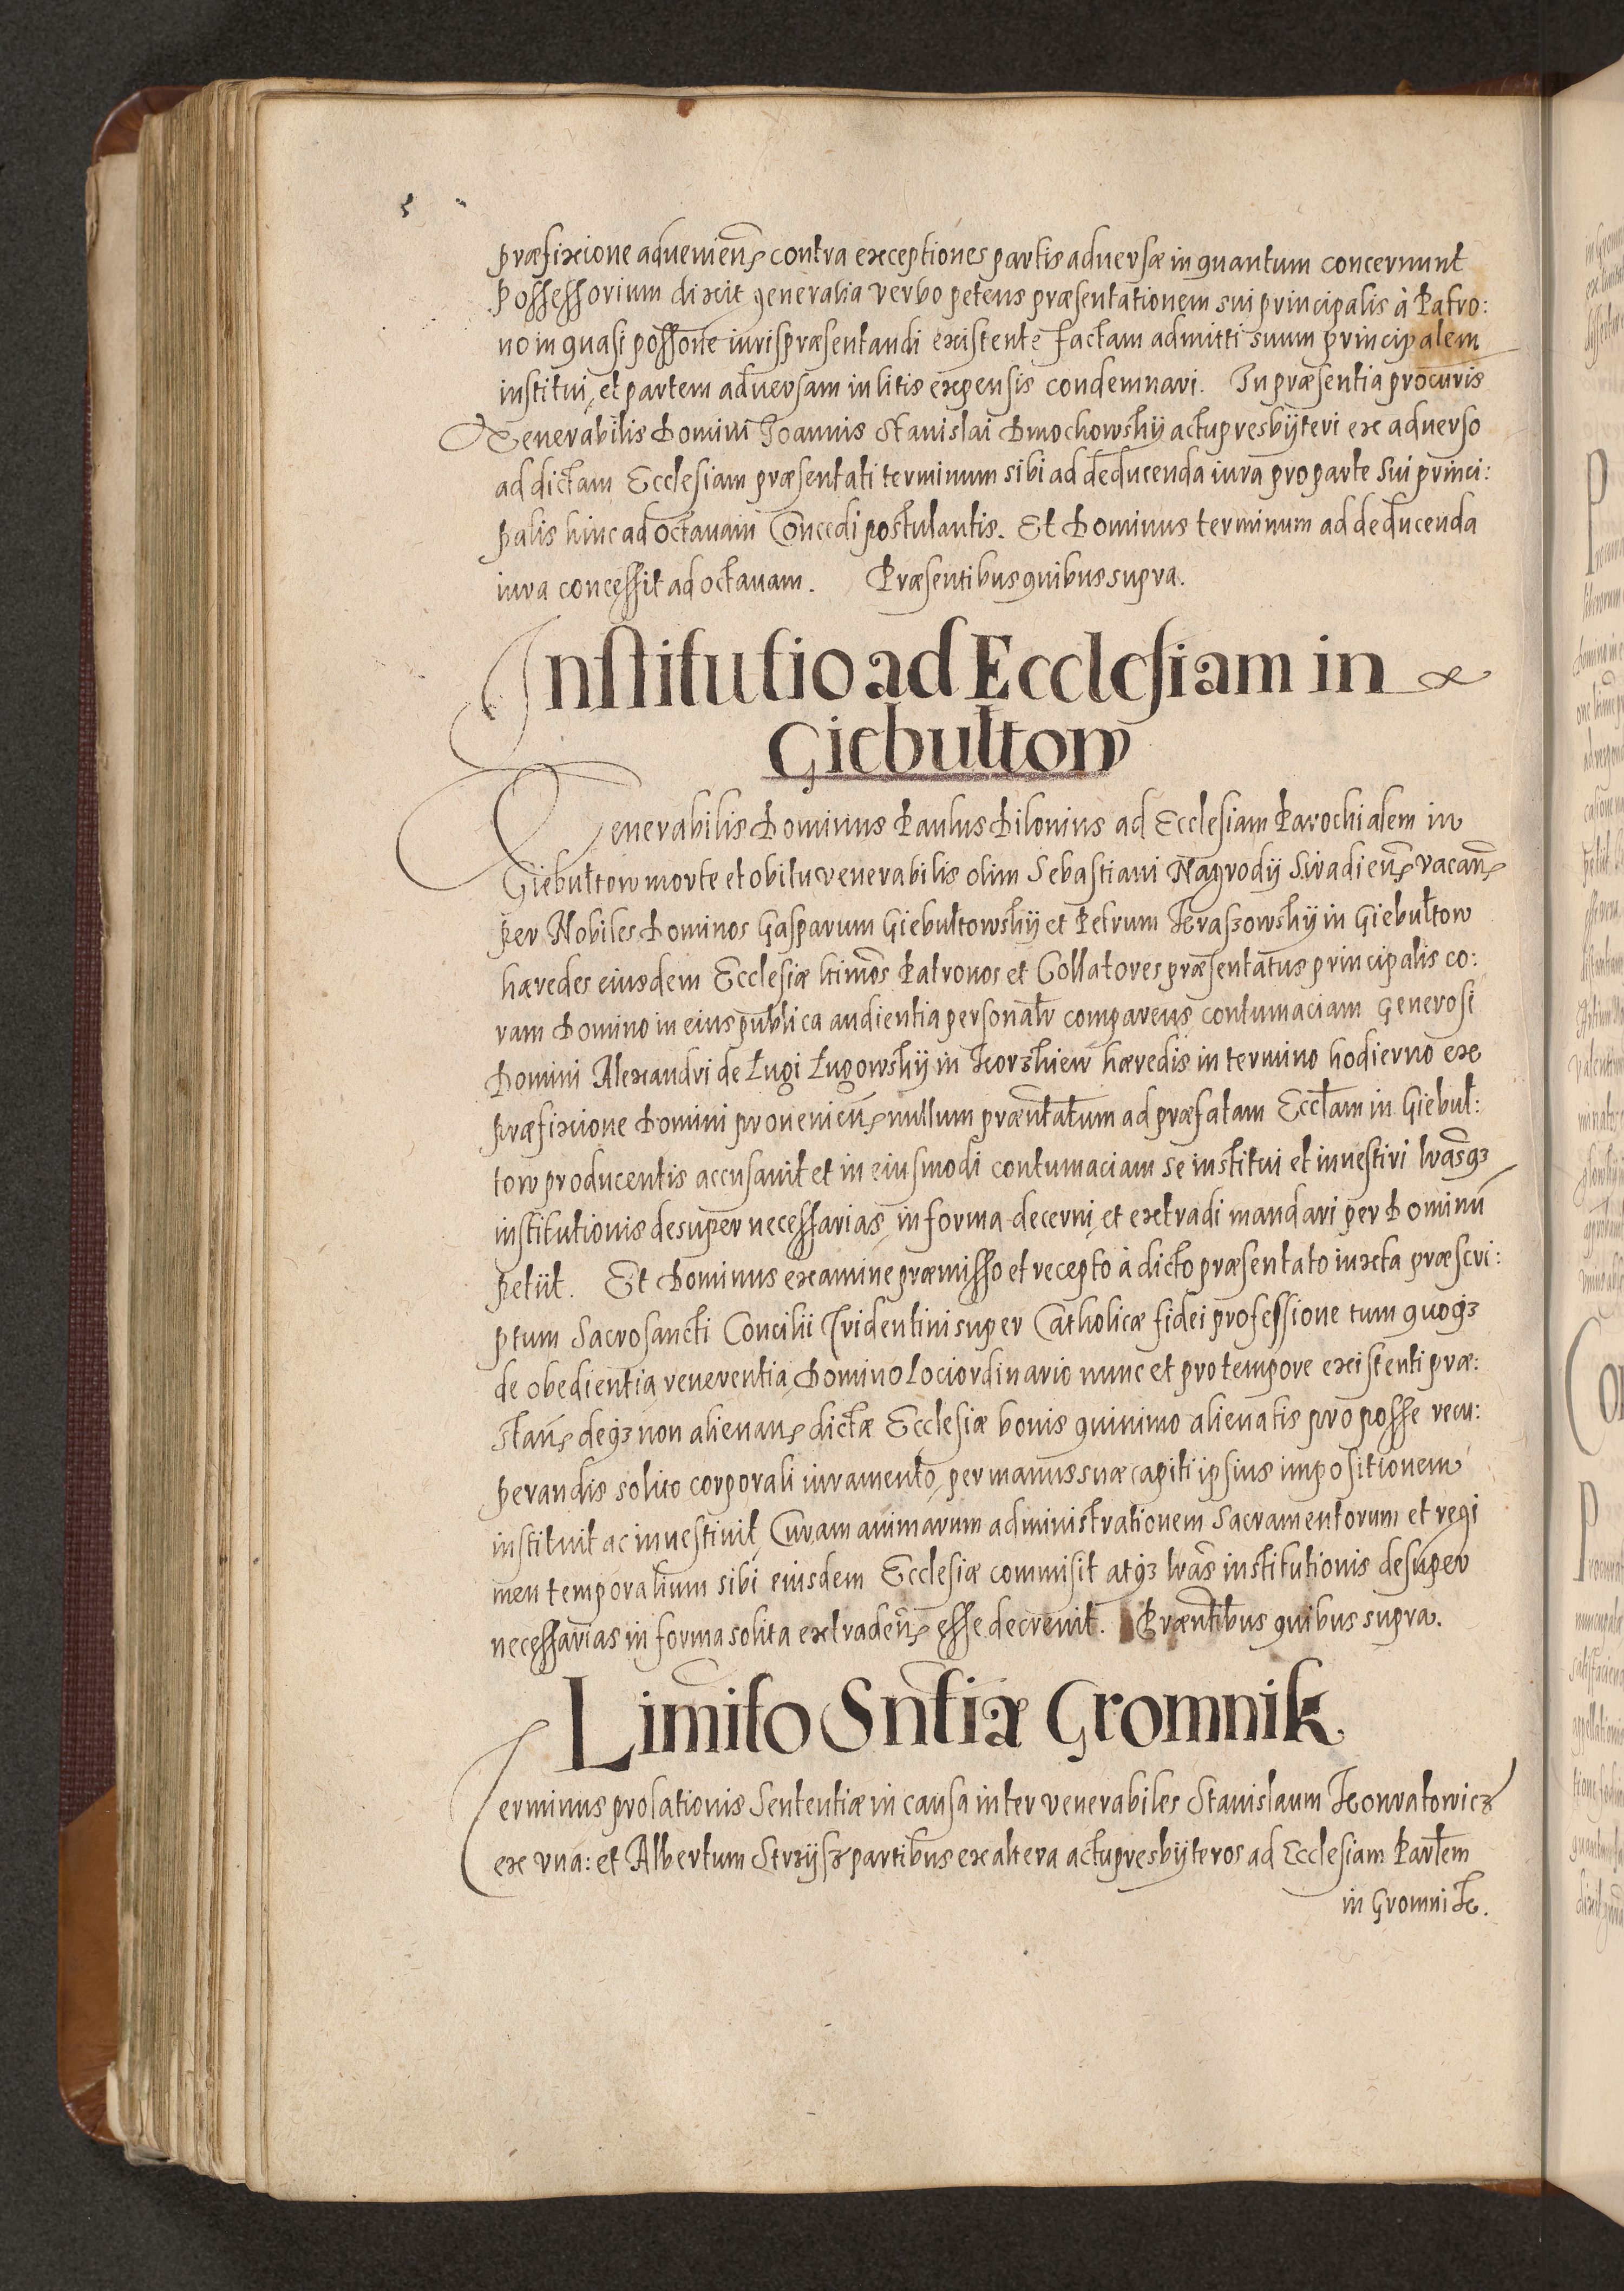 præfixione adveniens contra exceptiones partis adversæ in quantum concernunt
Possessorium dixit generalia verbo petens præsentationem sui principalis à Patro:
no in quasi possone iuris præsentandi existente factam admitti suum principalem
institui, et partem adversam in litis expensis condemnari. In præsentia procuris
Venerabilis Domini Joannis Stanislai Dmochowskÿ actu presbÿteri ex adverso
ad dictam Ecclesiam præsentati terminum sibi ad deducenda iura pro parte sui princi:
palis hinc ad octavam Concedi postulantis. Et Dominus terminum ad deducenda
iura concessit ad octavam. Præsentibus quibus supra.
Institutio ad Ecclesiam in
Giebułtow
Venerabilis Dominus Paulus Pilonius ad Ecclesiam Parochialem in
Giebułtow morte et obitu venerabilis olim Sebastiani Nagrodÿ Siradien̄ vacan̄
per Nobiles Dominos Gasparum Giebułtowskÿ et Petrum Kraszowskÿ in Giebułtow
hæredes eiusdem Ecclesiæ ltimos Patronos et Collatores præsentatus principalis co:
ram Domino in eius publica audientia personalr comparens contumaciam Generosi
Domini Alexandri de Ługi Ługowskÿ in Korzkiew hæredis in termino hodierno ex
præfixione Domini provenien̄ nullum præntatum ad præfatam Ecctam in Giebuł:
tow producentis accusavit et in eiusmodi contumaciam se institui et investiri lrasqȝ
institutionis desuper necessarias in forma decerni, et extradi mandari per Dominū
petiit. Et Dominus examine præmisso et recepto à dicto præsentato iuxta præscri:
ptum Sacrosancti Concilii Tridentini super Catholicæ fidei professione tum quoqȝ
de obedientia reverentia Domino loci ordinario nunc et pro tempore existenti præ:
stan̄ deqȝ non alienan̄ dictæ Ecclesiæ bonis quinimo alienatis pro posse recu:
perandis solito corporali iuramento, per manus suæ capiti ipsius impositionem
instituit ac investivit, Curam animarum administrationem Sacramentorum et regi
men temporalium sibi eiusdem Ecclesiæ commisit atqȝ lras institutionis desuper
necessarias in forma solita extraden̄ esse decrevit. Præntibus quibus supra.
Limito Sntiæ Gromnik
Terminus prolationis Sententiæ in causa inter venerabiles Stanislaum Konratowicz
ex una: et Albertum Strzÿsz partibus ex altera actu presbÿteros ad Ecclesiam Partem
in Gromnik.